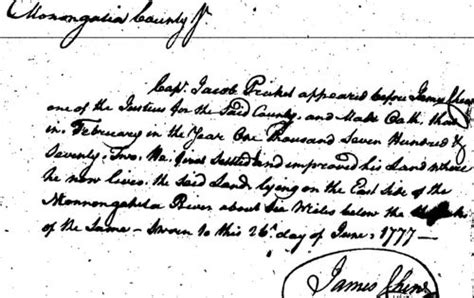 Monongalia County
Capt. Jacob Pricket appeared before James
one of the Justices for the said County, and Make Oath, that
in February in the Year One Thousand Seven Hundred &
Seventy Two. He first settled and improved his Land where
he now lives. the said Land lying on the East side of the
Monnongahela River about Six Miles below the
of the Same — Sworn to this 26th day of June, 1777 —
James